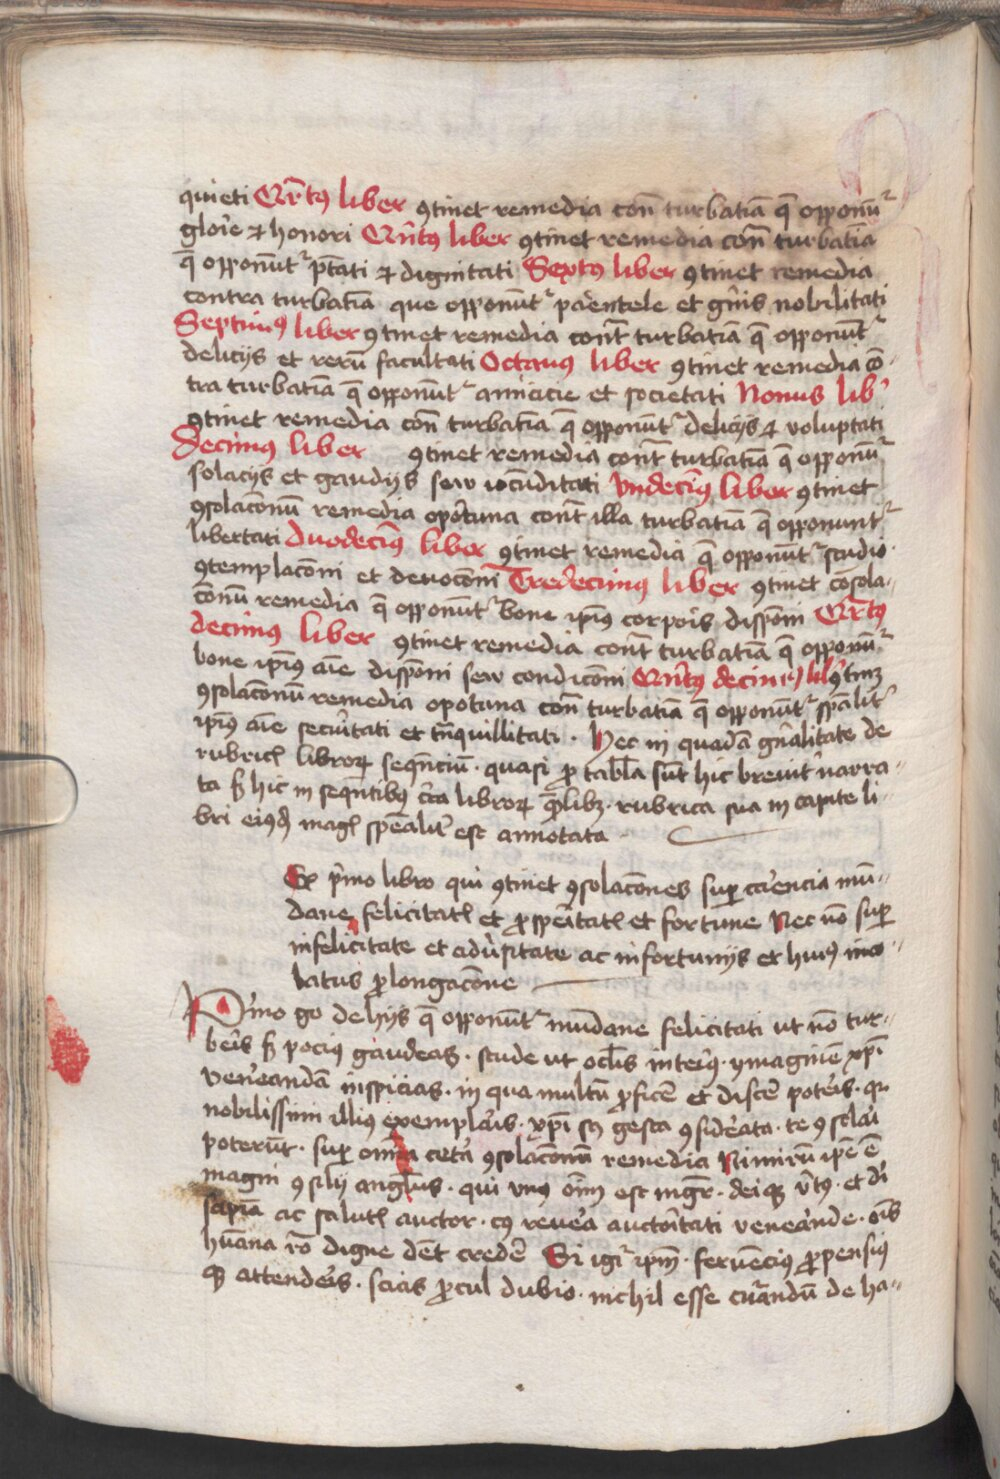 quieti Qr̄tꝰ liber ꝯtinet remedia con̄ turbatiā q̄ opponūt᷑
glor̄ie ⁊ honori Qn̄tꝰ liber ꝯtinet remedia con̄ turbatiā
q̄ opponūt᷑ ptāti ⁊ dignitati Sextꝰ liber ꝯtinet remedia
contra turbatiā que opponūt᷑ par̄entele et gn̄is nobilitati
Septimꝰ liber ꝯtinet remedia cont̄ turbatiā q̄ opponūt᷑
delicijs et rerū facultati Octauus liber ꝯtinet remedia cō-
tra turbatiā q̄ opponūt᷑ amicicie et societati Nonus lib̾
ꝯtinet remedia con̄ turbatiā q̄ opponūt᷑ delicijs ⁊ voluptati
Decimꝰ liber ꝯtinet remedia cont̄ turbatiā q̄ opponūt᷑
solacijs et gaudijs seu iocūditati Vndecīꝰ liber ꝯtinet
ꝯsolacōnū remedia opor̄tuna cont̄ illa turbatiā q̄ opponunt᷑
libertati Duodecīꝰ liber ꝯtinet remedia q̄ opponūt᷑ studio
ꝯtemplacōni et deuocōni Tredecimꝰ liber ꝯtinet cōsola-
cōnū remedia q̄ opponūt᷑ bone ip̄iꝰ corpor̄is disp̄oni Qr̄tꝰ
decimꝰ liber ꝯtinet remedia cont̄ turbatiā q̄ opponūt᷑
bone ip̄iꝰ aīe disp̄oni seu condicōni Qn̄tꝰ decimꝰ lib̾ ꝯtinꝫ
ꝯsolacōnū remedia opotuna con̄ turbatiā q̄ opponūt᷑ sp̄alit̾
ip̄iꝰ aīe secur̄itati et tn̄quillitati · Hec in quadā gn̄alitate de
rubricꝭ libroꝝ seqn̄ciū · quasi ꝓ tabla sūt hic breuit̾ narra-
ta sꝫ hic in seqn̄tibꝰ cir̄ca libroꝝ qūlibꝫ · rubrica sua in capite li-
bri eiꝰdē magꝭ spēalit̾ est annotata
Ex pr̄mo libro qui ꝯtinet ꝯsolacōnes suꝑ car̄encia mū-
dane felicitatꝭ et ꝓspeītatꝭ et fortune Nec nō suꝑ
infelicitate et adūsitate ac infortunijs et huiꝰ inco-
latus ꝓlongacōne
Pr̄mo go de hijs q̄ opponūt᷑ mūdane felicitati ut nō tur-
ber̄is sꝫ pociꝰ gaudeas · stude ut oclīs inter̄iꝰ · ymaginē xp̄i
vener̄andā inspicias · in qua multū ꝓficer̄e et discer̄e poter̄is · qꝛ
nobilissimi illius exemplar̄is · xp̄i sꝫ gesta ꝯsider̄ata · te ꝯsolar̄i
poterūt · suꝑ om̄ia cer̄ta ꝯsolacōnū remedia Nimirū ip̄e ē
magni ꝯsilij angelus · qui vnꝰ oīm est mgr̄ · dei qꝫ v̄tꝰ · et di
sapiā ac salutꝭ auctor · cꝰ reuer̄a auctor̄itati vener̄ande · oīs
hūana rō digne dēt creder̄e Si igr̄ ip̄m · feruēciꝰ ꝓpensiꝰ
qꝫ attender̄is · scias ꝓcul dubio · nichil esse cur̄andū de ha-